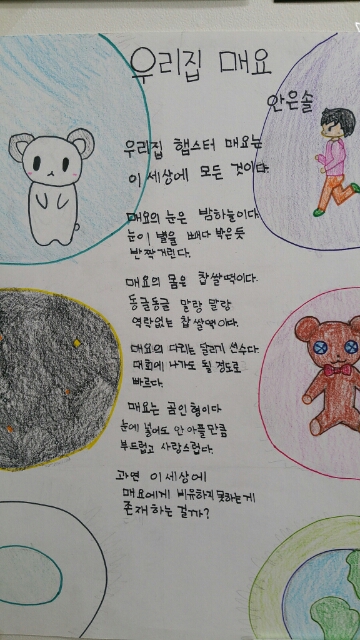 우리집 매요
안은솔
우리집 햄스터 매요는
이 세상에 모든 것이다.
매요의 눈은 밤하늘이다.
눈이 별을 빼다 박은듯
반짝거린다.
매요의 몸은 찹쌀떡이다.
동글동글 말랑 말랑
역락없는 찹쌀떡이다.
매요의 다리는 달리기 선수다.
대회에 나가도 될 정도로
빠르다.
매요는 곰인형이다
눈에 넣어도 안 아플만큼
부드럽고 사랑스럽다.
과연 이 세상에
매요에게 비유하지 못하는게
존재하는 걸까?